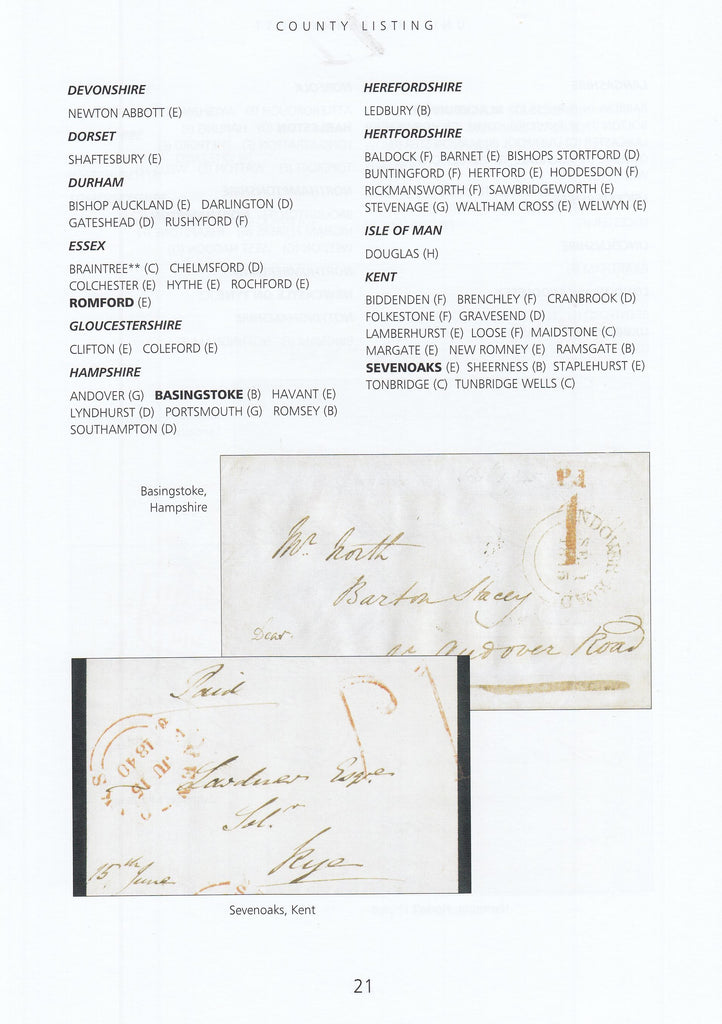 COUNTY LISTING
DEVONSHIRE
NEWTON ABBOTT (E)
DORSET
SHAFTESBURY (E)
DURHAM
BISHOP AUCKLAND (E) DARLINGTON (D)
GATESHEAD (D) RUSHYFORD (F)
ESSEX
BRAINTREE** (C) CHELMSFORD (D)
COLCHESTER (E) HYTHE (E) ROCHFORD (E)
ROMFORD (E)
GLOUCESTERSHIRE
CLIFTON (E) COLEFORD (E)
HAMPSHIRE
ANDOVER (G) BASINGSTOKE (B) HAVANT (E)
LYNDHURST (D) PORTSMOUTH (G) ROMSEY (B)
SOUTHAMPTON (D)
HEREFORDSHIRE
LEDBURY (B)
HERTFORDSHIRE
BALDOCK (F) BARNET (E) BISHOPS STORTFORD (D)
BUNTINGFORD (F) HERTFORD (E) HODDESDON (F)
RICKMANSWORTH (F) SAWBRIDGEWORTH (E)
STEVENAGE (G) WALTHAM CROSS (E) WELWYN (E)
ISLE OF MAN
DOUGLAS (H)
KENT
BIDDENDEN (F) BRENCHLEY (F) CRANBROOK (D)
FOLKESTONE (F) GRAVESEND (D)
LAMBERHURST (E) LOOSE (F) MAIDSTONE (C)
MARGATE (E) NEW ROMNEY (E) RAMSGATE (B)
SEVENOAKS (E) SHEERNESS (B) STAPLEHURST (E)
TONBRIDGE (C) TUNBRIDGE WELLS (C)
Basingstoke,
Hampshire
Pd
1
ANDOVER ROAD
Mr North
Barton Stacey
Dear
nr Andover Road
Paid
1
JU 15
1840
Lardner Esqre
Solr
Rye
15th June
Sevenoaks, Kent
21